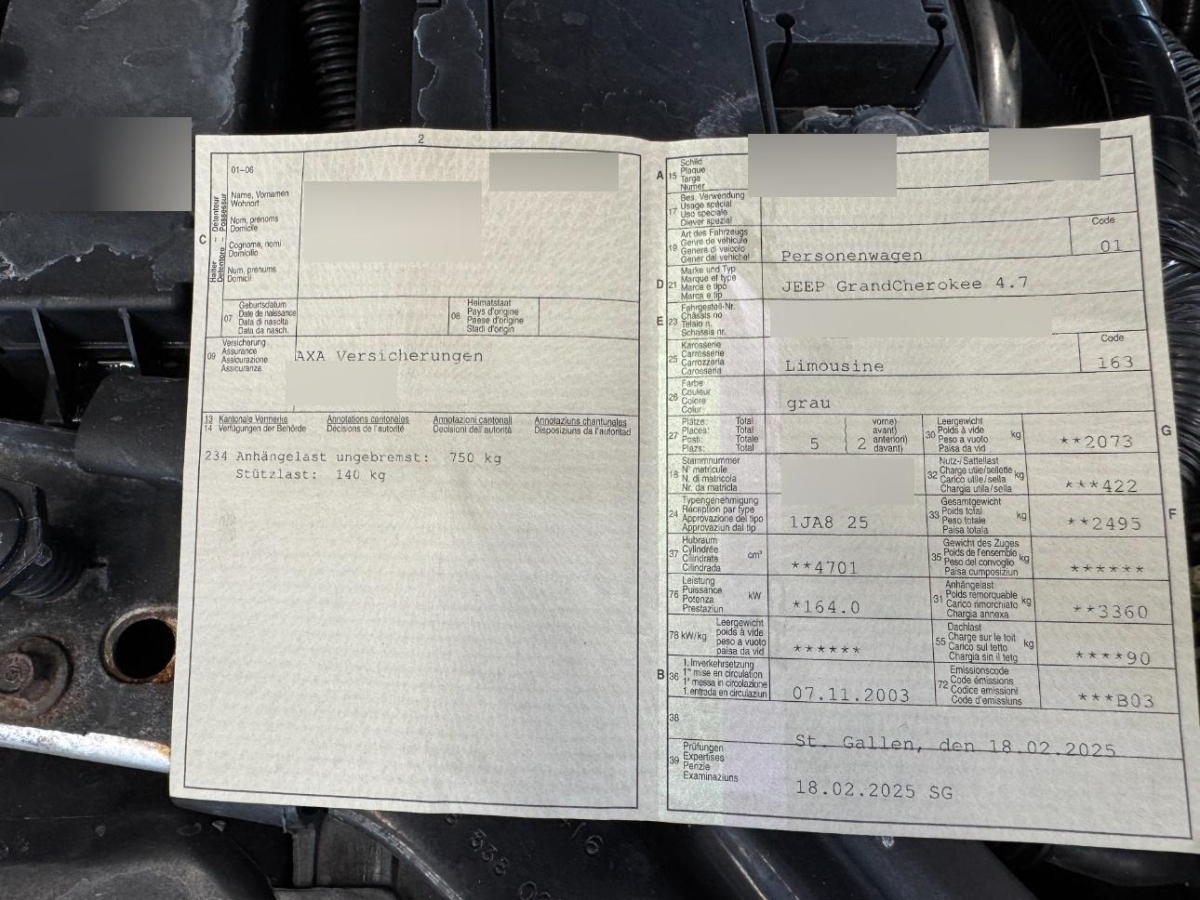 2
01-06
C
Halter Détenteur
Detentore Possessur
Name, Vornamen
Wohnort
Nom, prénoms
Domicile
Cognome, nomi
Domicilio
Num, prenums
Domicil
07
Geburtsdatum
Date de naissance
Data di nascita
Data da nasch.
08
Heimatstaat
Pays d'origine
Paese d'origine
Stadi d'origin
09
Versicherung
Assurance
Assicurazione
Assicuranza
AXA Versicherungen
13 Kantonale Vermerke Annotations cantonales Annotazioni cantonali Annotaziuns chantunalas
14 Verfügungen der Behörde Décisions de l'autorité Decisioni dell'autorità Disposiziuns da l'autoritad
234 Anhängelast ungebremst: 750 kg
Stützlast: 140 kg
A 15
Schild
Plaque
Targa
Numer
17
Bes. Verwendung
Usage spécial
Uso speciale
Diever spezial
19
Art des Fahrzeugs
Genre de véhicule
Genere di veicolo
Gener dal vehichel
Personenwagen
Code
01
D 21
Marke und Typ
Marque et type
Marca e tipo
Marca e tip
JEEP GrandCherokee 4.7
E 23
Fahrgestell-Nr.
Châssis no
Telaio n.
Schassis nr.
25
Karosserie
Carrosserie
Carrozzeria
Carossaria
Limousine
Code
163
26
Farbe
Couleur
Colore
Colur
grau
27
Plätze: Total
Places: Total
Posti: Totale
Plazs: Total
5
vorne)
avant)
anteriori)
davant)
2
30
Leergewicht
Poids à vide
Peso a vuoto
Paisa da vid
kg
**2073
G
18
Stammnummer
N° matricule
N. di matricola
Nr. da matricla
32
Nutz-/Sattellast
Charge utile/sellette
Carico utile/sella
Chargia utila/sella
kg
***422
24
Typengenehmigung
Réception par type
Approvazione del tipo
Approvaziun dal tip
1JA8 25
33
Gesamtgewicht
Poids total
Peso totale
Paisa totala
kg
**2495
F
37
Hubraum
Cylindrée
Cilindrata
Cilindrada
cm³
**4701
35
Gewicht des Zuges
Poids de l'ensemble
Peso del convoglio
Paisa cumposiziun
kg
******
76
Leistung
Puissance
Potenza
Prestaziun
kW
*164.0
31
Anhängelast
Poids remorquable
Carico rimorchiato
Chargia annexa
kg
**3360
78 kW/kg
Leergewicht
poids à vide
peso a vuoto
paisa da vid
******
55
Dachlast
Charge sur le toit
Carico sul tetto
Chargia sin il tetg
kg
****90
B 36
1. Inverkehrsetzung
1re mise en circulation
1a messa in circolazione
1. entrada en circulaziun
07.11.2003
72
Emissionscode
Code émissions
Codice emissioni
Code d'emissiuns
***B03
38
St. Gallen, den 18.02.2025
39
Prüfungen
Expertises
Perizie
Examinaziuns
18.02.2025 SG